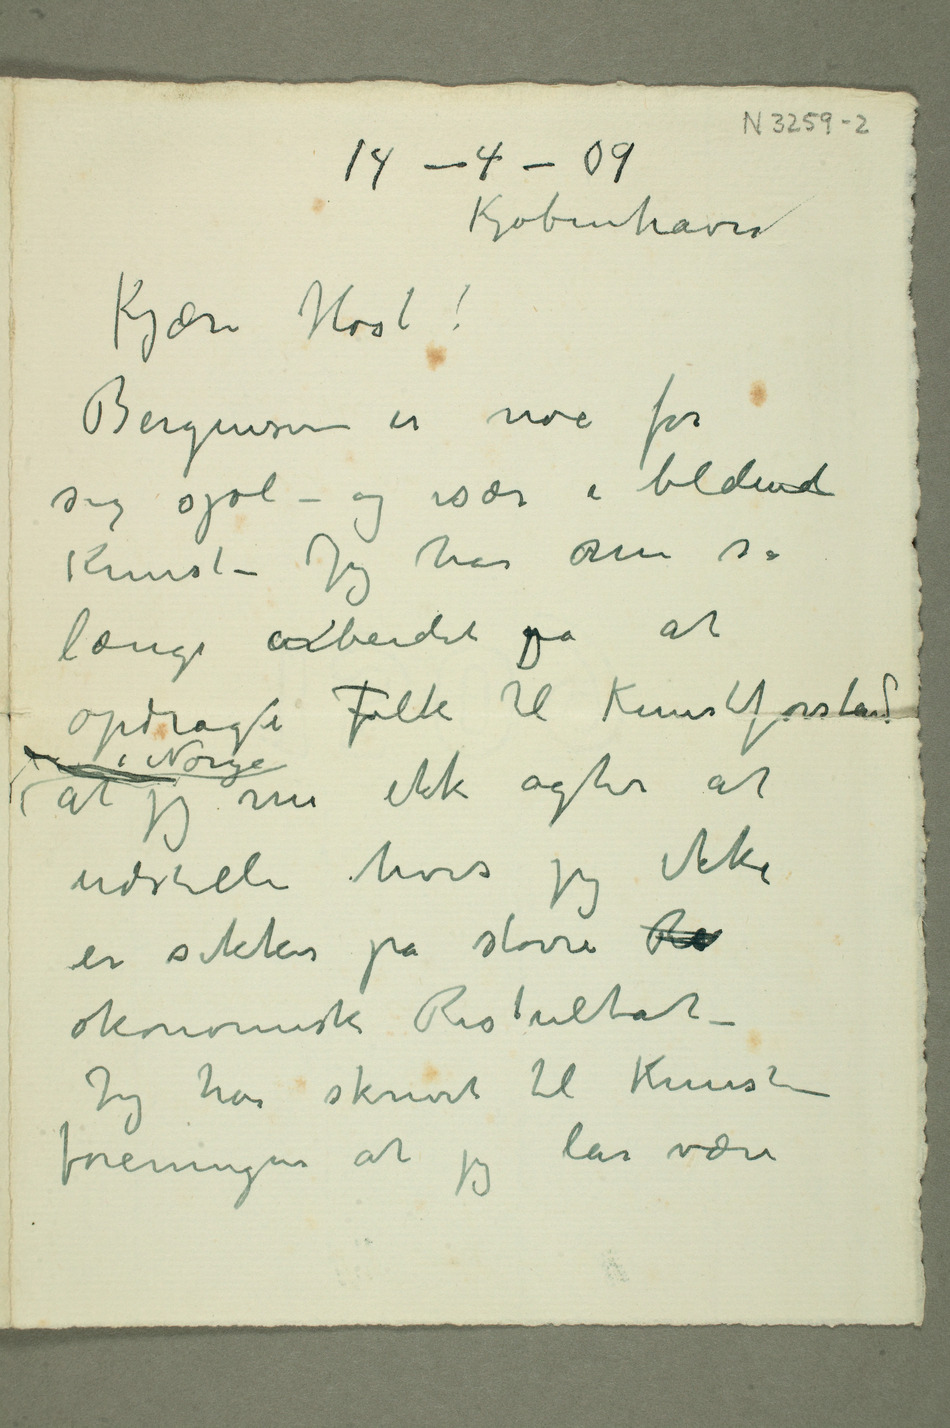 N 3259-2
14 – 4 – 09
Kjøbenhavn
Kjære Høst!
Bergensere er noe for
sig sjøl – og især i bldend
Kunst – Jeg har nu så
længe arbeidet på at
opdrage Folk til Kunstforstand
i Norge
at jeg nu ikke agter at
udstille hvis jeg ikke
er sikker på større
økonomisk Resultat –
Jeg har skrevet til Kunst-
foreningen at jeg lar være